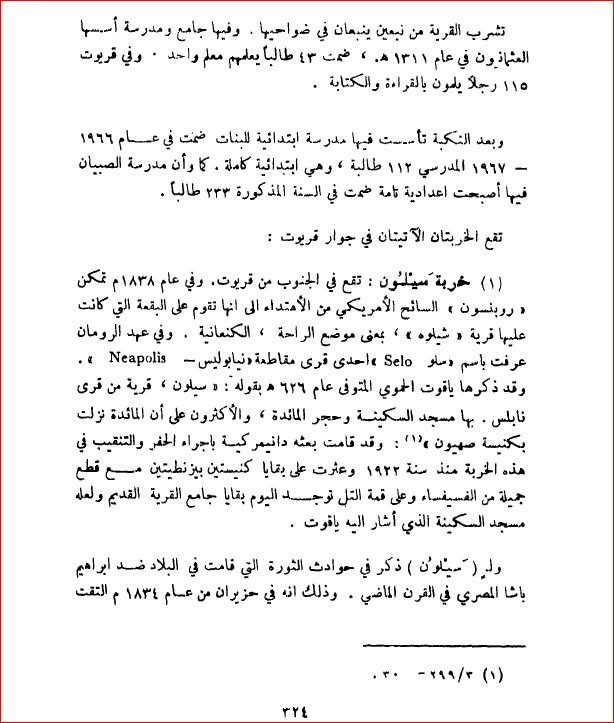 تشرب القرية من نبعين ينبعان في ضواحيها . وفيها جامع ومدرسة أسسها
العثمانيون في عام ١٣١١ هـ. ، ضمت ٤٣ طالباً يعلمهم معلم واحد . وفي قريوت
١١٥ رجلاً يلمون بالقراءة والكتابة .
وبعد النكبة تأسست فيها مدرسة ابتدائية للبنات ضمت في عــام ١٩٦٦
– ١٩٦٧ المدرسي ١١٢ طالبة ، وهي ابتدائية كاملة . كما وأن مدرسة الصبيان
فيها أصبحت اعدادية تامة ضمت في السنة المذكورة ٢٣٣ طالباً .
تقع الخربتان الآتيتان في جوار قريوت :
(١) خربة سَيْلُون : تقع في الجنوب من قريوت. وفي عام ١٨٣٨م تمكن
« روبنسون » السائح الأمريكي من الأهتداء الى انها تقوم على البقعة التي كانت
عليها قرية « شيلوه » ، بمعنى موضع الراحة ، الكنعانية . وفي عهد الرومان
عرفت باسم «سلو Selo »احدى قرى مقاطعة «نيابوليس – Neapolis » .
وقد ذكرها ياقوت الحموي المتوفى عام ٦٢٦ هـ بقوله : « سيلون ، قرية من قرى
نابلس . بها مسجد السكينــة وحجر المائدة ، والأكثرون على أن المائدة نزلت
بكنيسة صهيون »(١) : وقد قامت بعثه دانيمركية باجراء الحفر والتنقيب في
هذه الخربة منذ سنة ١٩٢٢ وعثرت على بقايا كنيستين بيزنطيتين مــع قطع
جميلة من الفسيفساء وعلى قمة التل توجــد اليوم بقايا جامع القرية القديم ولعله
مسجد السكينة الذي أشار اليه ياقوت .
ولـِ ( سَيْلُون ) ذكر في حوادث الثورة التي قامت في البلاد ضــد ابراهيم
باشا المصري في القرن الماضي . وذلك انه في حزيران من عــام ١٨٣٤ م التقت
(١) ٢٩٩/٣ – ٣٠ .
٣٢٤